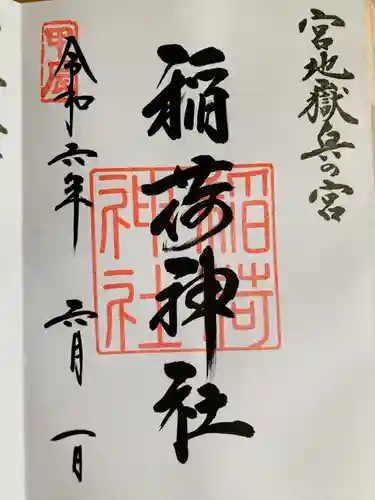 宮地嶽奥の宮
稲荷神社
稲荷
神社
令和六年 六月 一日
甲辰